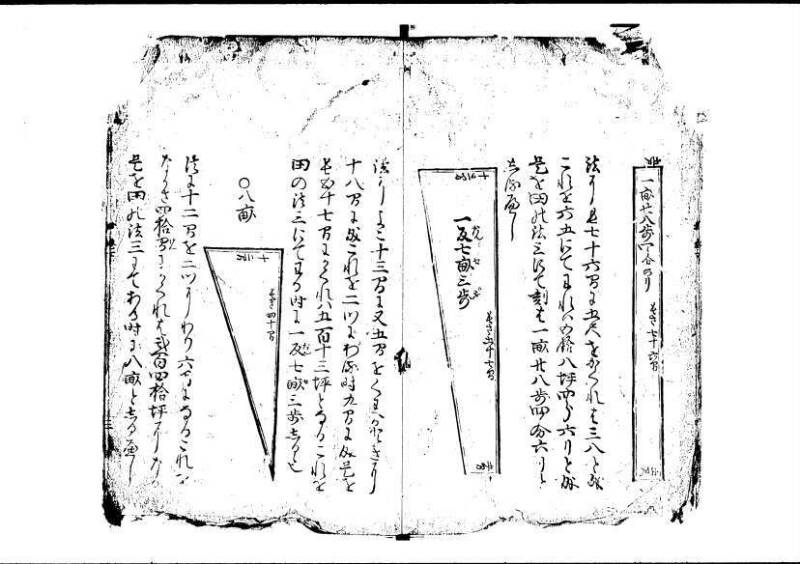 一畝廿八歩四分六リ
長サ七十六間
法ニ長七十六間に五尺をかくれは三八と成
これを六五にてわれハ五拾八坪四分六リと成
是を田の法三にて割は一畝廿八歩四分六リと
しるへし
一反七畝三歩
長サ五十七間
法によこ十三間に又五間をくわへ
十八間に成これを二ツにわる時九間に成是を
長五十七間にかくれハ五百十三坪となるこれを
田の法三にてわる時に一反七畝三歩しると也
〇八畝
長サ四十間
法に十二間を二ツにわり六間になるこれに
なかさ四拾間をかくれは弐百四拾坪になる
是を田の法三にてわる時に八畝としるへし